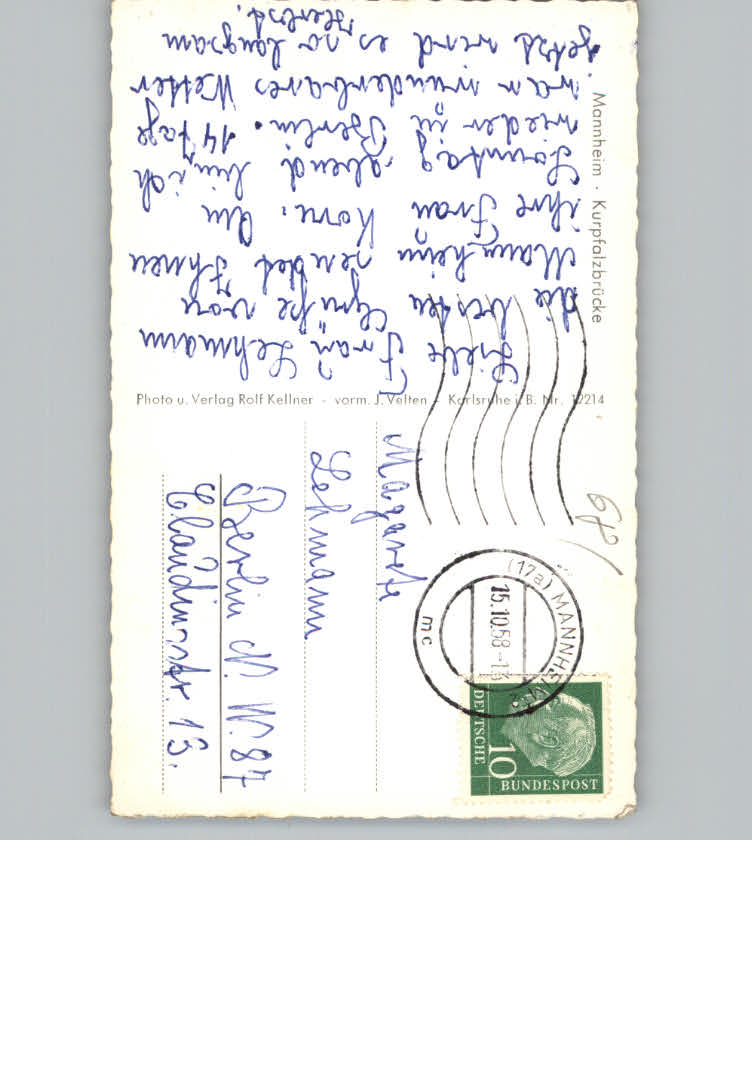 Liebe Frau Lehmann
die besten Grüße von
Mannheim sendet Ihnen
ihre Frau Korn. Am
Sonntag abend bin ich
wieder in Berlin. 14 Tage
war wunderbares Wetter
jetzt wird es so langsam
Herbst.
Mannheim · Kurpfalzbrücke
Photo u. Verlag Rolf Kellner - vorm. J. Velten - Karlsruhe i. B. Nr. 12214
(17a) MANNHEIM 2
15.10.58-13
mc
DEUTSCHE
BUNDESPOST
10
Magarete
Lehmann
Berlin N.W.87
Claudiusstr. 13.